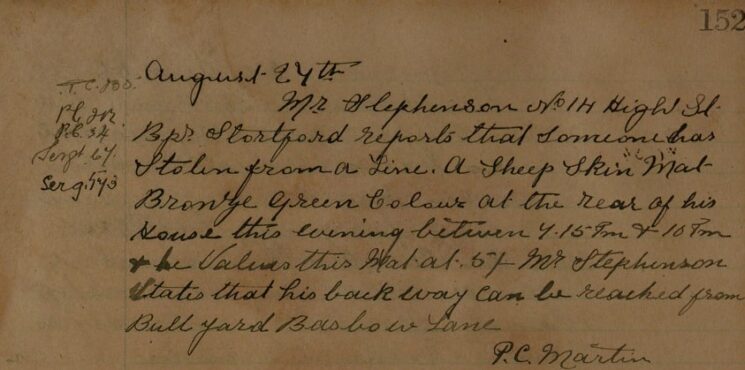 152
August 27th
Mr Stephenson No 14 High St
Bps Stortford reports that someone has
Stolen from a Line. A Sheep Skin Mat
Bronze Green Colour at the rear of his
House this evening between 7.15 Pm & 10 Pm
& he Values this Mat at 5/ Mr Stephenson
States that his back way can be reached from
Bull Yard Basbow Lane
P.C. Martin
P.C.
P.C. 34
Sergt 67
Sergt